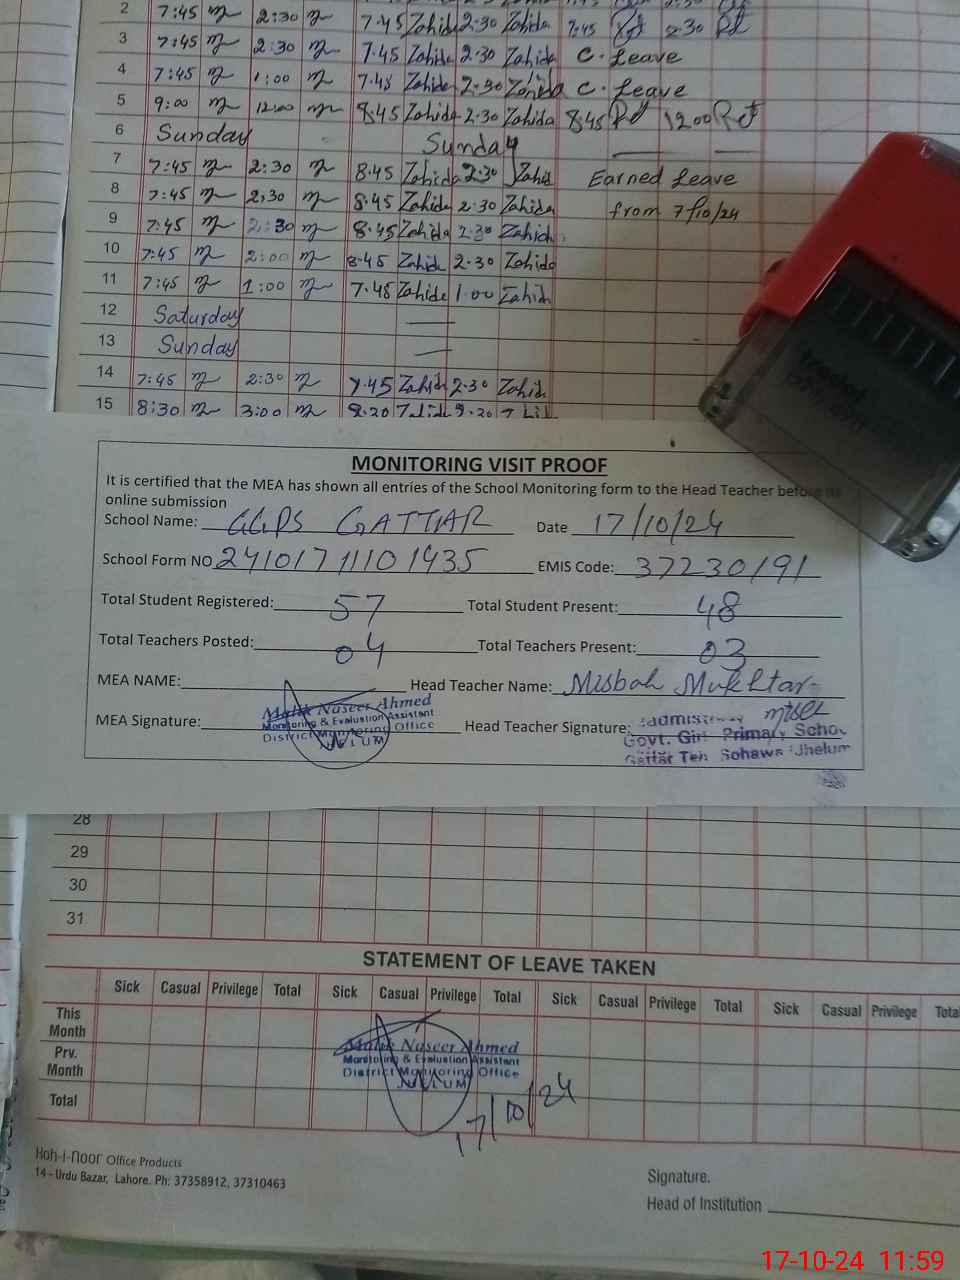 2 7:45 2:30 7.45 Zahida 2.30 Zahida 7:45 2.30
3 7:45 2:30 7.45 Zahida 2.30 Zahida C. Leave
4 7:45 1:00 7.45 Zahida 2.30 Zahida C. Leave
5 9:00 12:00 8.45 Zahida 2.30 Zahida 8.45 12.00
6 Sunday Sunday
7 7:45 2:30 8.45 Zahida 2.30 Zahid Earned Leave
8 7:45 2:30 8.45 Zahida 2.30 Zahida from 7/10/24
9 7:45 2:30 8.45 Zahida 2.30 Zahida
10 7:45 2:00 8.45 Zahida 2.30 Zahida
11 7:45 1:00 7.45 Zahida 1.00 Zahid
12 Saturday
13 Sunday
14 7:45 2:30 7.45 Zahida 2.30 Zahida
15 8:30 3:00 8.20
MONITORING VISIT PROOF
It is certified that the MEA has shown all entries of the School Monitoring form to the Head Teacher before its
online submission
School Name: GGPS GATTAR Date 17/10/24
School Form NO 24101711101435 EMIS Code: 37230191
Total Student Registered: 57 Total Student Present: 48
Total Teachers Posted: 04 Total Teachers Present: 03
MEA NAME: Head Teacher Name: Misbah Mukhtar
Malik Naseer Ahmed
Monitoring & Evaluation Assistant
District Monitoring Office
JHELUM
MEA Signature: Head Teacher Signature:
Govt. Girl Primary School
Gattar Teh Sohawa Jhelum
28
29
30
31
STATEMENT OF LEAVE TAKEN
Sick Casual Privilege Total Sick Casual Privilege Total Sick Casual Privilege Total Sick Casual Privilege Total
This Month
Prv. Month
Total
Malik Naseer Ahmed
Monitoring & Evaluation Assistant
District Monitoring Office
JHELUM
17/10/24
Koh-i-noor Office Products
14 - Urdu Bazar, Lahore. Ph: 37358912, 37310463
Signature.
Head of Institution
17-10-24 11:59